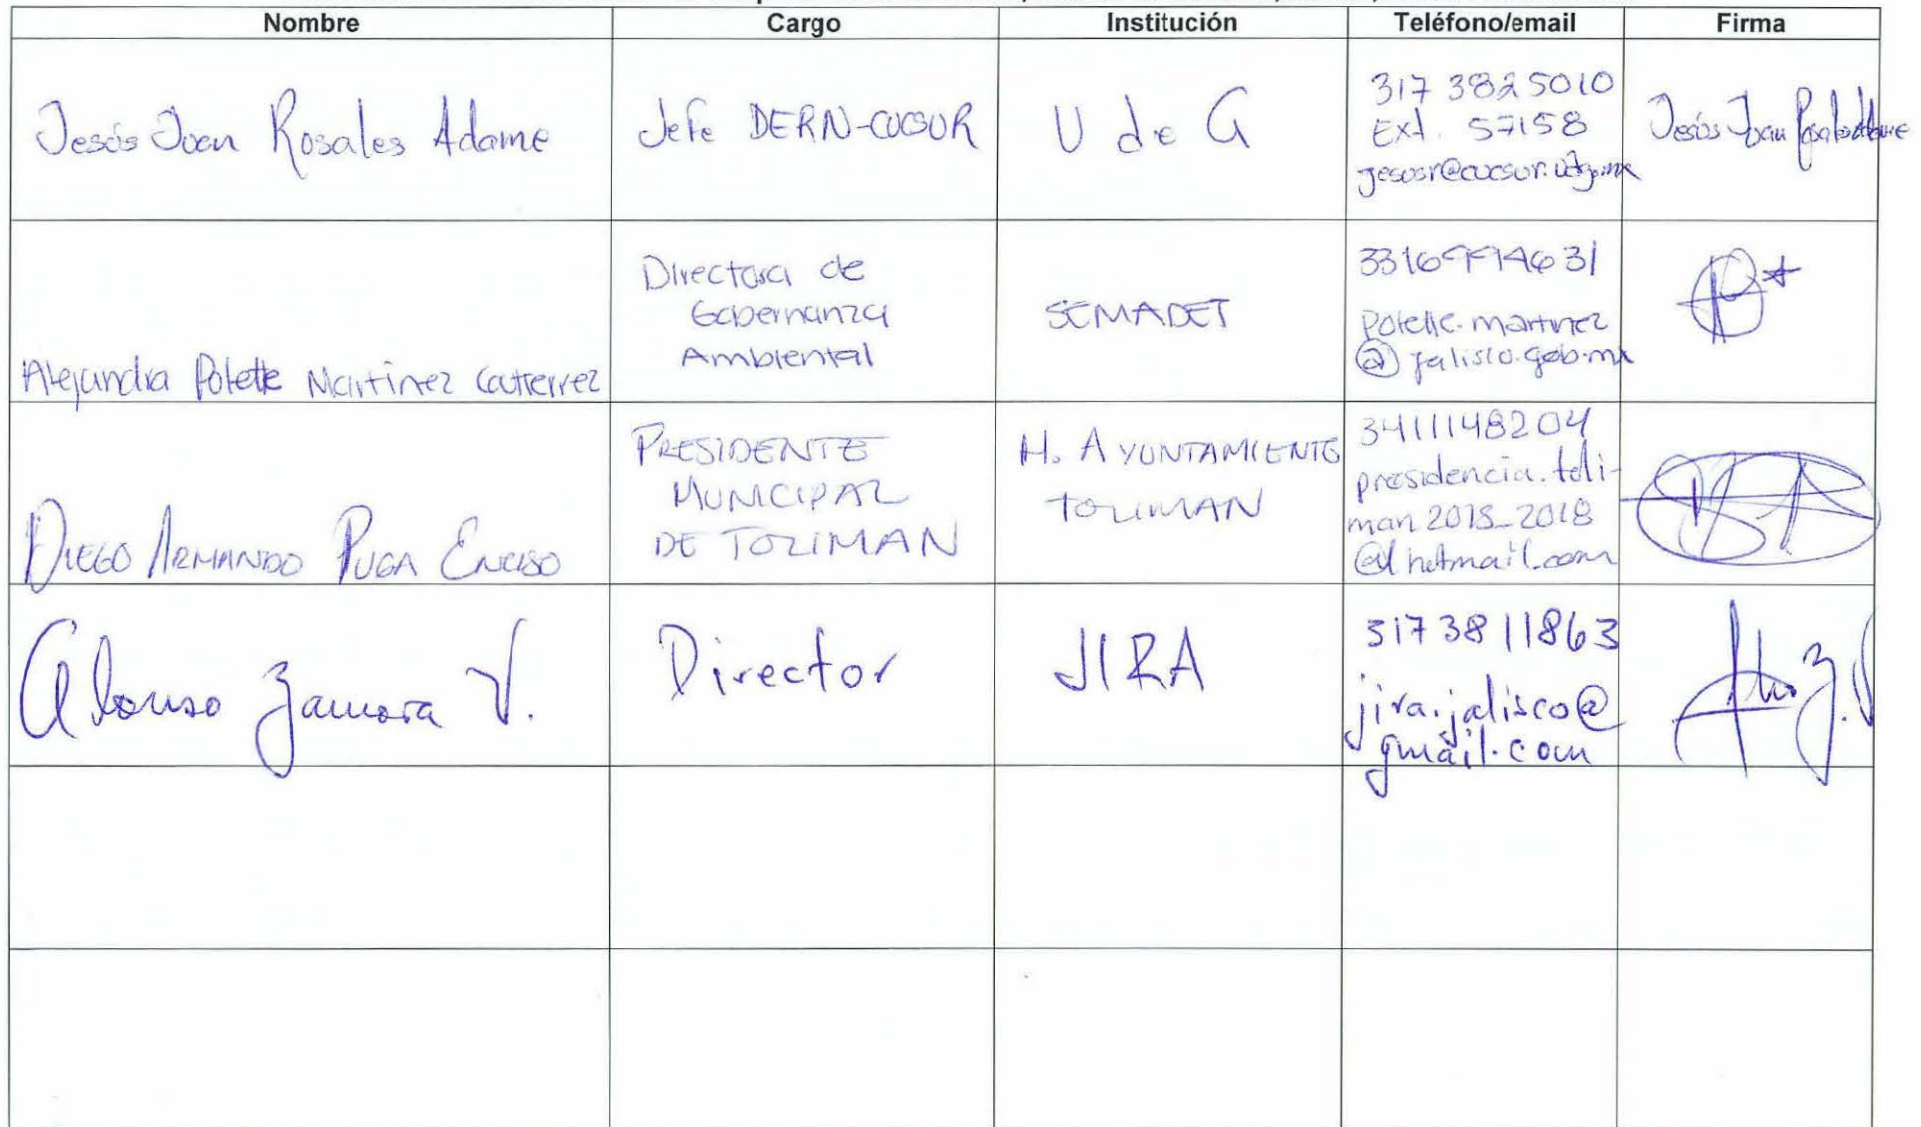 Nombre Cargo Institución Teléfono/email Firma
Jesús Juan Rosales Adame
Jefe DERN-CUCSUR
U de G
317 3825010
Ext. 57158
jesusr@cucsur.udg.mx
Jesús Juan Rosales Adame
Alejandra Polette Martinez Gutierrez
Directora de
Gobernanza
Ambiental
SEMADET
polette.martinez
@jalisco.gob.mx
DIEGO ARMANDO PUGA ENCISO
PRESIDENTE
MUNICIPAL
DE TOLIMAN
H. AYUNTAMIENTO
TOLIMAN
34111148204
presidencia.toli-
man2015_2018
@hotmail.com
Alonso Zamora V.
Director
JIRA
317 38 11863
jira.jalisco@
gmail.com